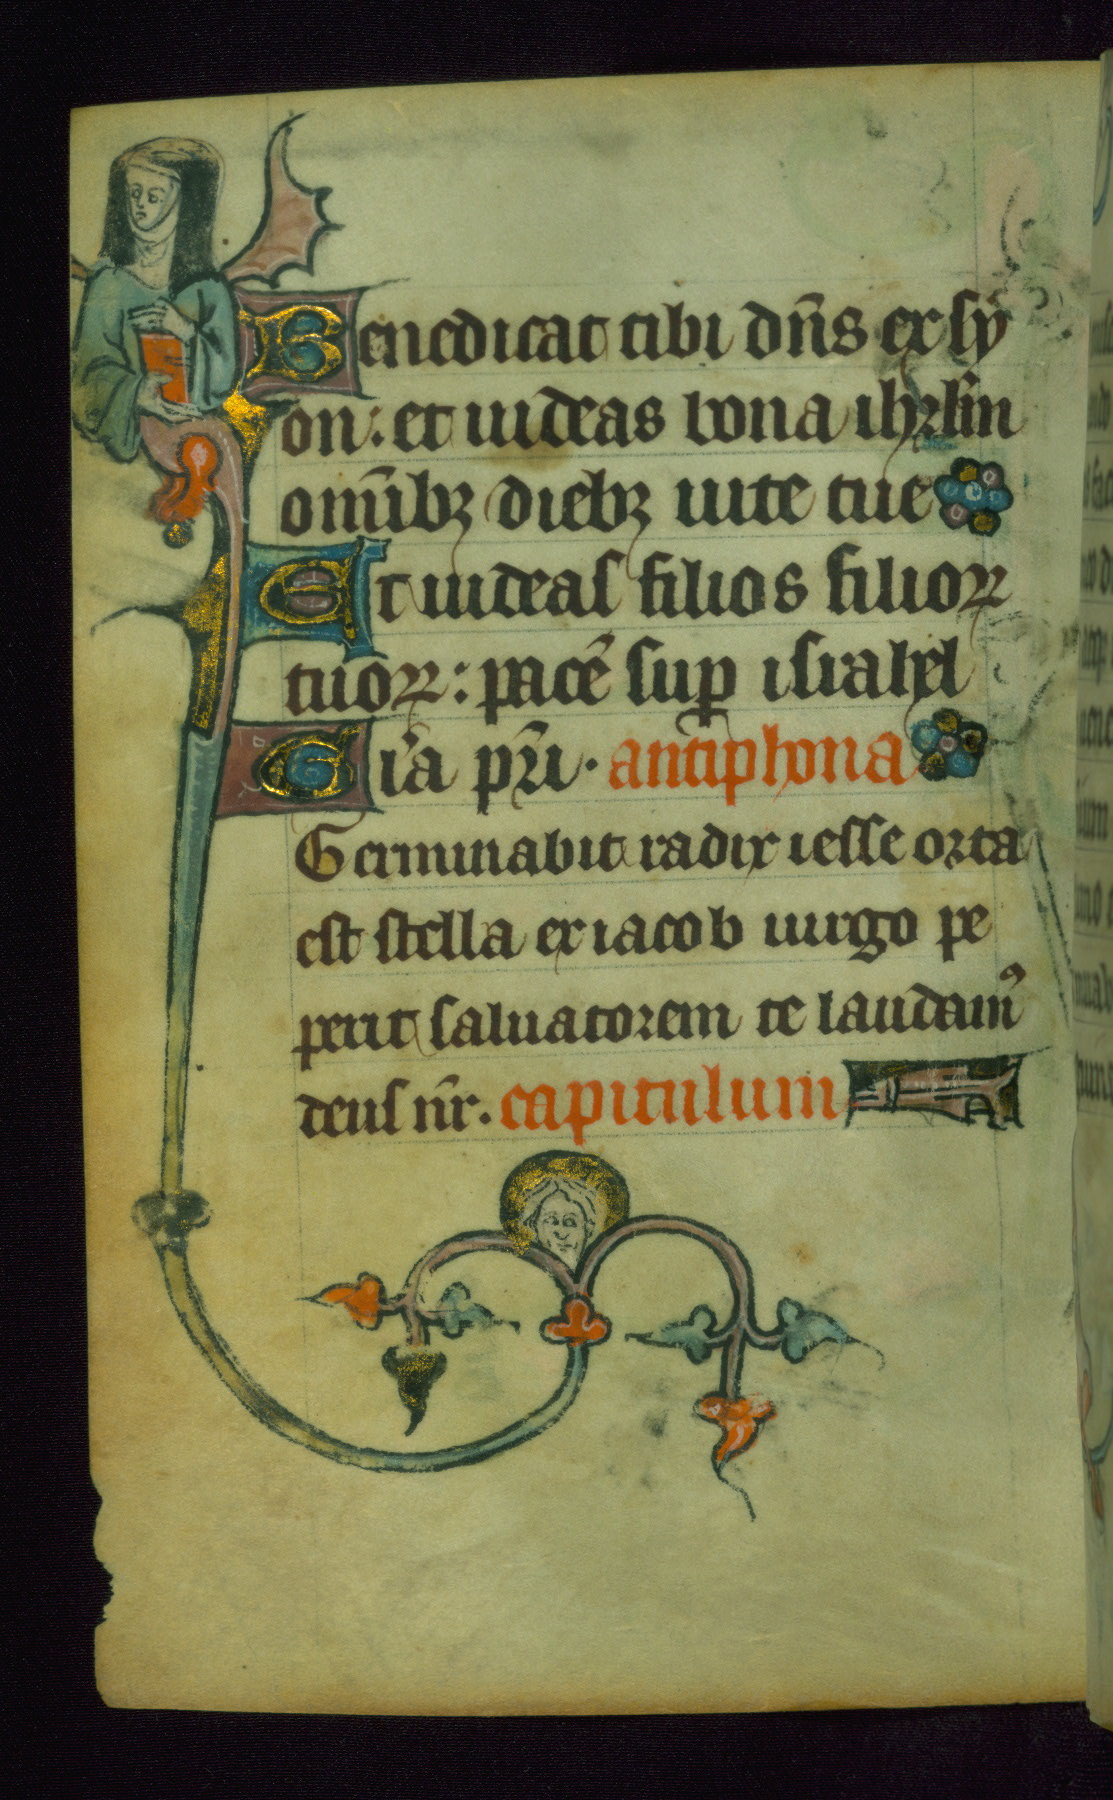 Benedicat tibi dn̄s ex sy
on: et uideas bona ihrlm̄
om̄ibꝫ diebꝫ uite tue
Et uideas filios filioꝝ
tuoꝝ: pacē sup̲ israhel
Gl̄a pr̄i· antiphona
Germinabit radix iesse orta
est stella ex iacob uirgo pe
perit saluatorem te laudam᷒
deus nr̄. capitulum